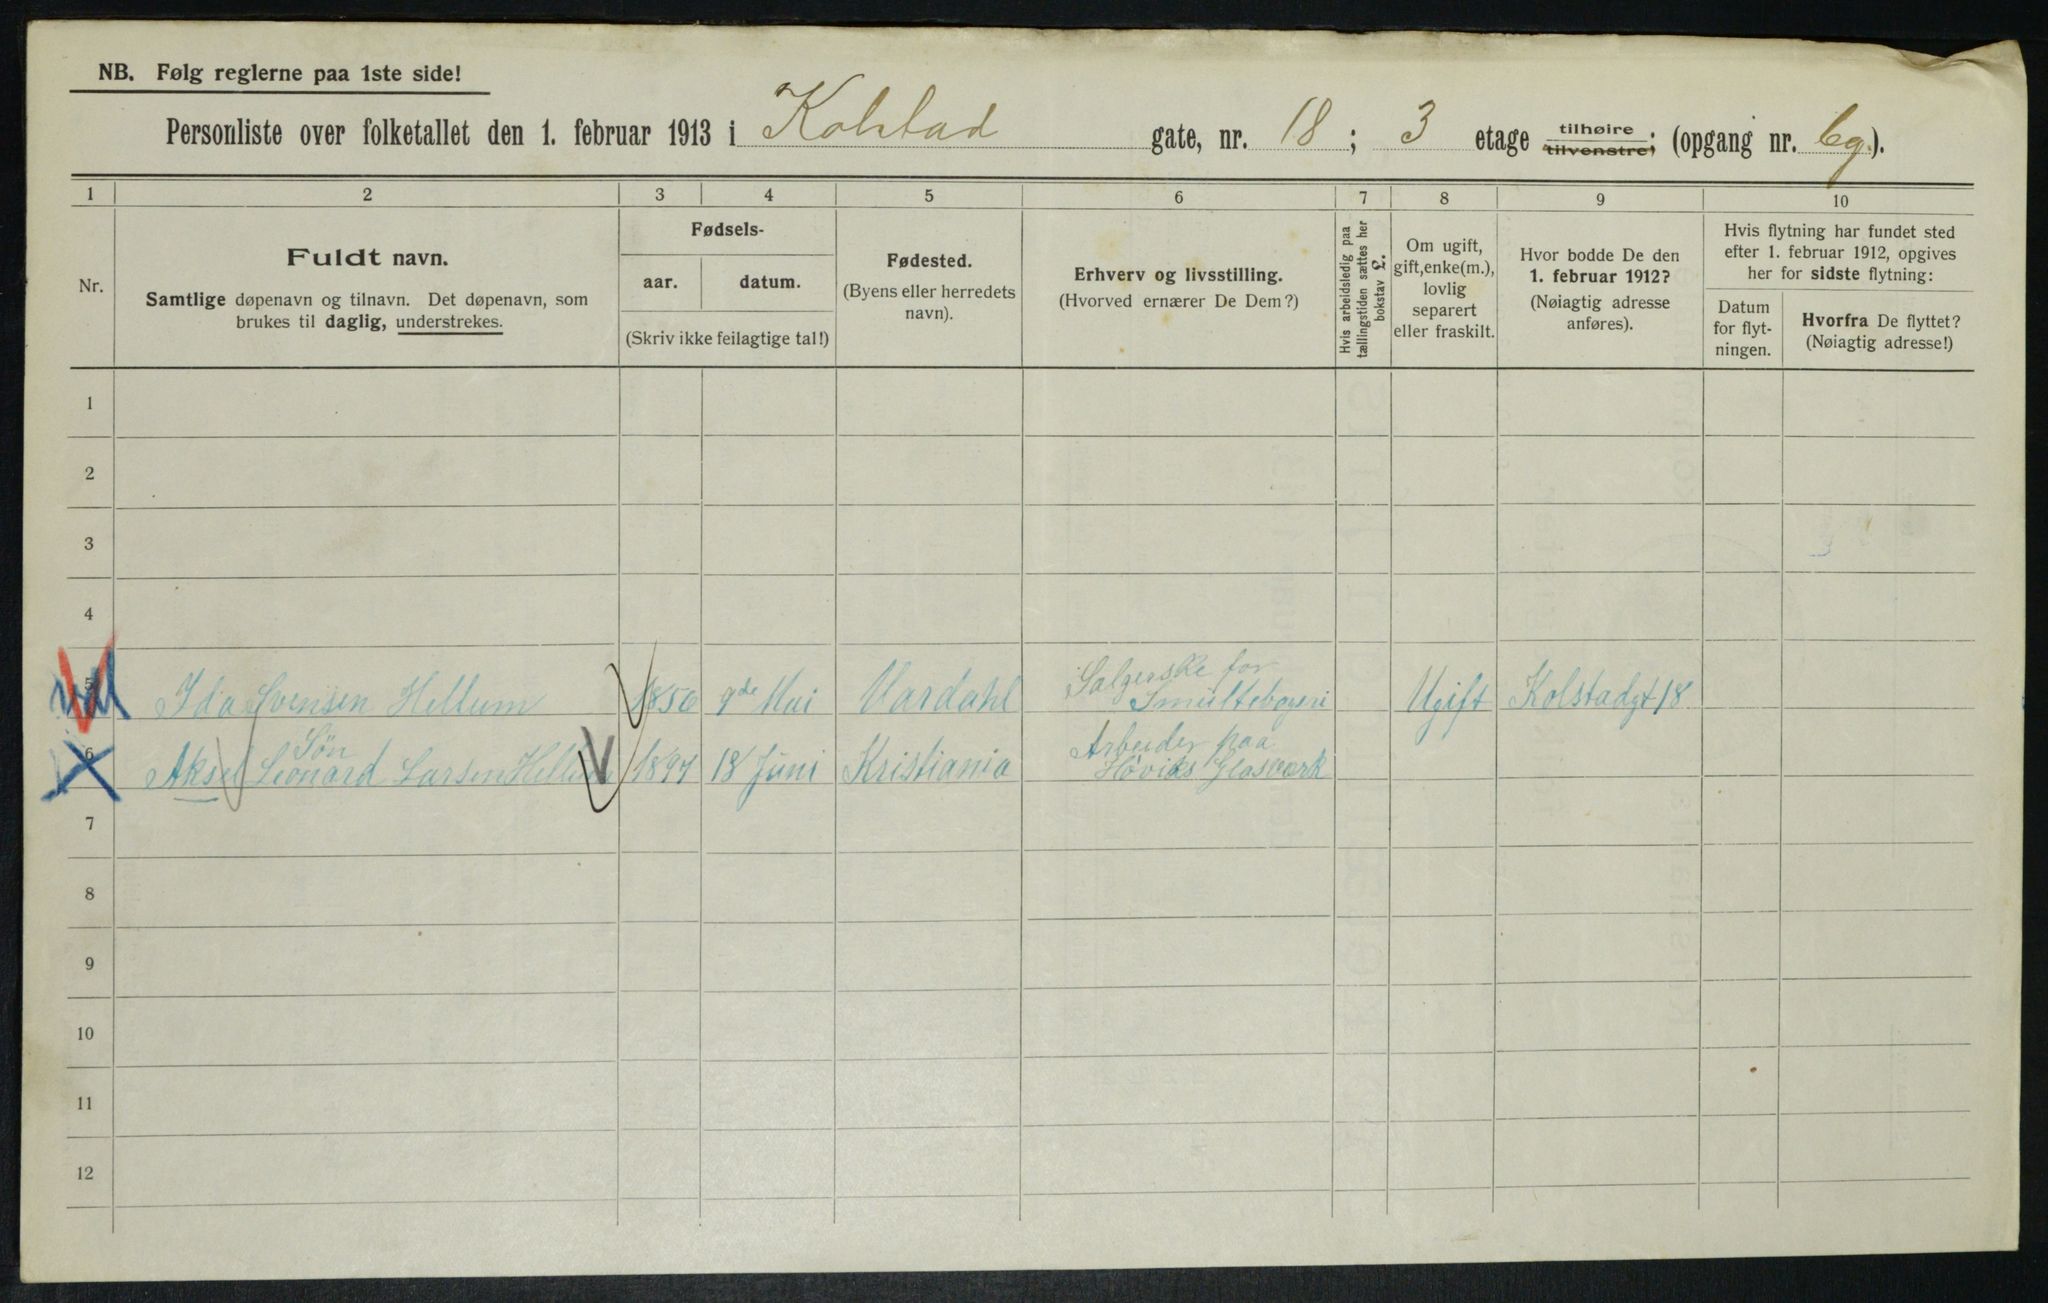 NB. Følg reglerne paa 1ste side!
Personliste over folketallet den 1. februar 1913 i Kolstad gate, nr. 18; 3 etage tilhøire tilvenstre; (opgang nr. Bg.).
1 2 3 4 5 6 7 8 9 10
Nr.
Fuldt navn.
Samtlige døpenavn og tilnavn. Det døpenavn, som
brukes til daglig, understrekes.
Fødsels-
aar. datum.
(Skriv ikke feilagtige tal!)
Fødested.
(Byens eller herredets
navn).
Erhverv og livsstilling.
(Hvorved ernærer De Dem?)
Hvis arbeidsledig paa
tællingstiden sættes her
bokstav L.
Om ugift,
gift, enke(m.),
lovlig
separert
eller fraskilt.
Hvor bodde De den
1. februar 1912?
(Nøiagtig adresse
anføres).
Hvis flytning har fundet sted
efter 1. februar 1912, opgives
her for sidste flytning:
Datum
for flyt-
ningen.
Hvorfra De flyttet?
(Nøiagtig adresse!)
1
2
3
4
5 Ida Svensen Hellum 1856 9de Mai Vardahl Salgerske for
Smultebageri Ugift Kolstadgt 18
6 Søn
Aksel Leonard Larsen Hellum 1897 18 Juni Kristiania Arbeider paa
Høviks Glasverk
7
8
9
10
11
12